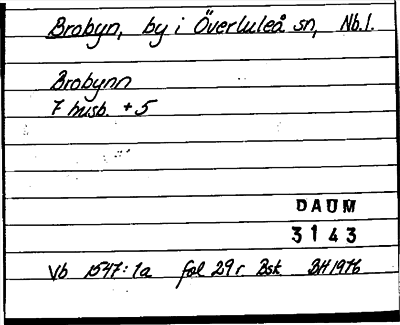 Brobyn, by i Överluleå sn, Nb.l.
Brobynn
7 husb. + 5
DAUM
3143
Vb 1547:1a fol 29 r. Bsk BH 1976